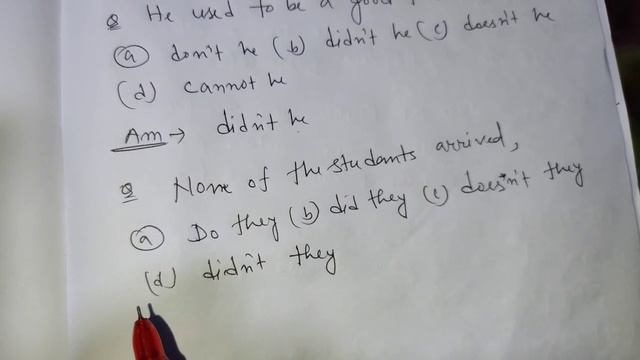 Q He used to be a good
(a) don't he (b) didn't he (c) doesn't he
(d) cannot he
Ans → didn't he
Q None of the students arrived,
(a) Do they (b) did they (c) doesn't they
(d) didn't they